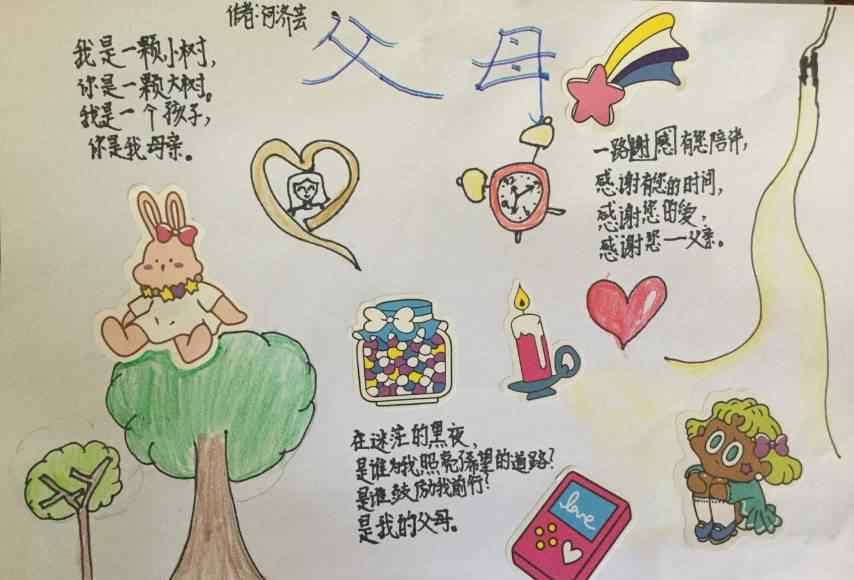 作者:河济芸
父母
我是一颗小树，
你是一颗大树。
我是一个孩子，
你是我母亲。
一路谢感有您陪伴，
感谢有您的时间，
感谢您的爱，
感谢您一一父亲。
在迷茫的黑夜，
是谁为我照亮希望的道路？
是谁鼓励我前行？
是我的父母。
love